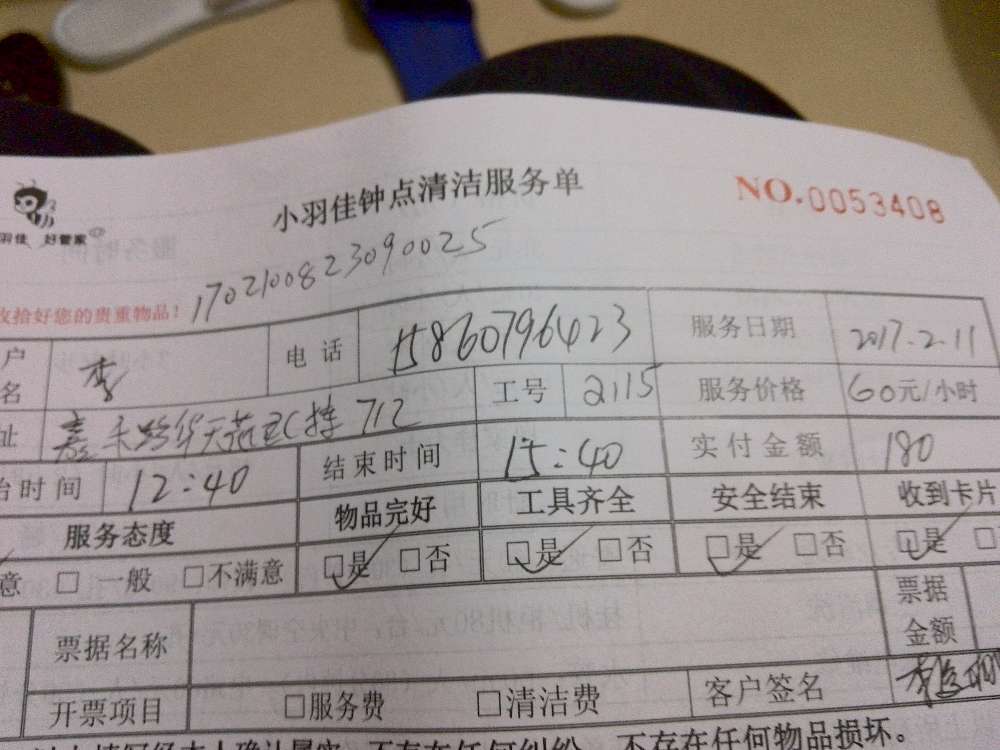 小羽佳钟点清洁服务单
NO.0053408
羽佳 好管家
1702100823090025
收拾好您的贵重物品!
户名 李 电话 15860796423 服务日期 2017.2.11
址 嘉禾路 712 工号 2115 服务价格 60元/小时
始时间 12:40 结束时间 15:40 实付金额 180
服务态度 物品完好 工具齐全 安全结束 收到卡片
意 □ 一般 □不满意 □是 □否 □是 □否 □是 □否 □是 □
票据名称 票据金额
开票项目 □服务费 □清洁费 客户签名
不存在任何纠纷,不存在任何物品损坏。